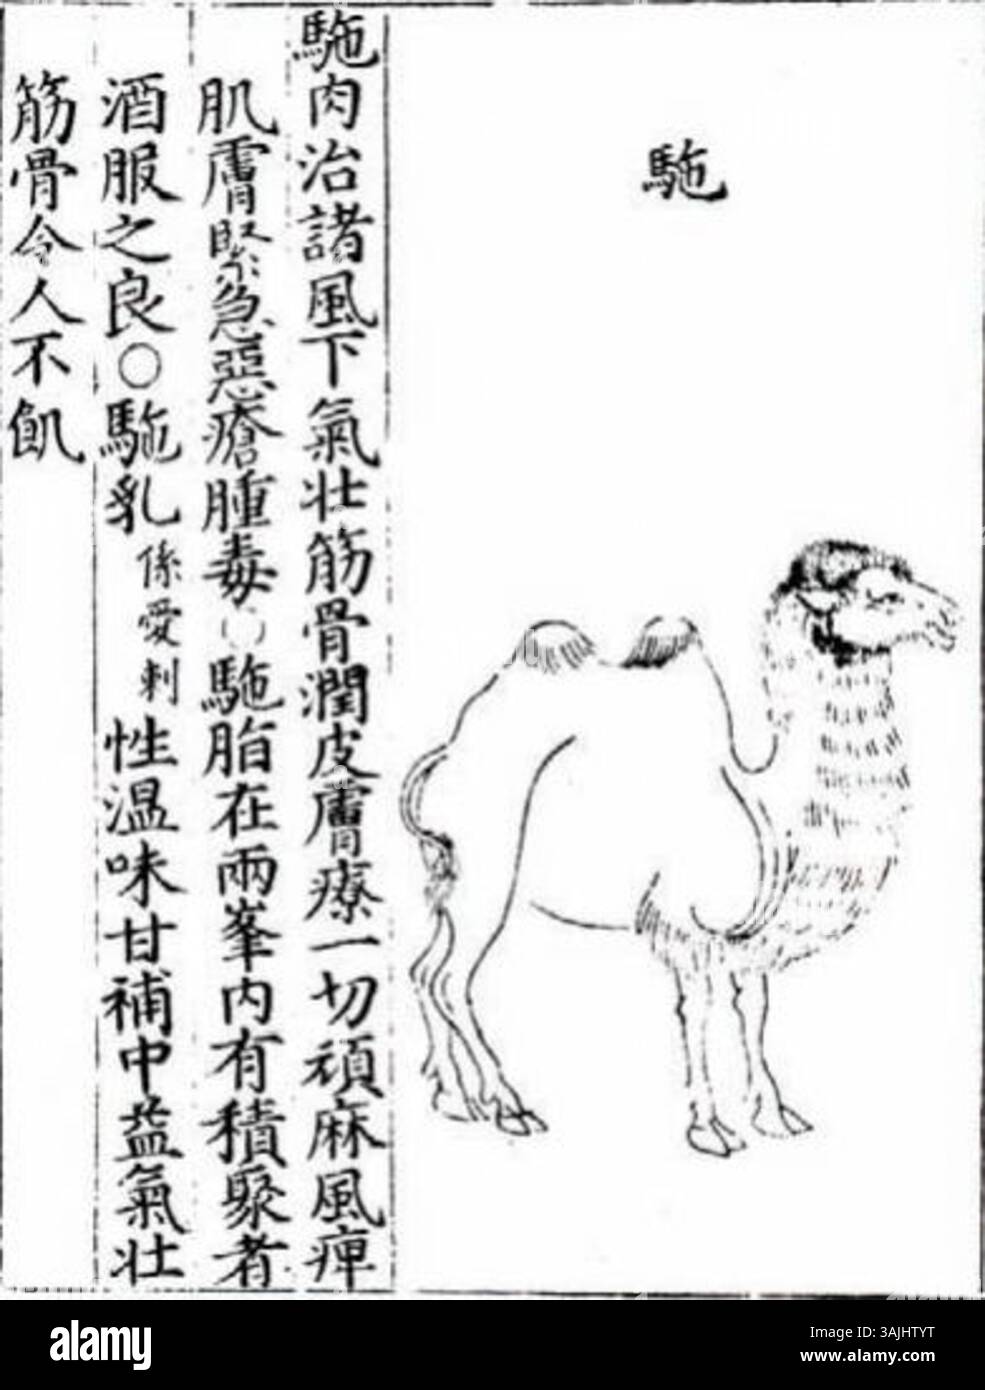 駞
駞肉治諸風下氣壯筋骨潤皮膚療一切頑麻風痺
肌膚緊急惡瘡腫毒○駞脂在兩峯內有積聚者
酒服之良○駞乳係愛剌性温味甘補中益氣壯
筋骨令人不飢
alamy
Image ID: 3AJHTYT
www.alamy.com